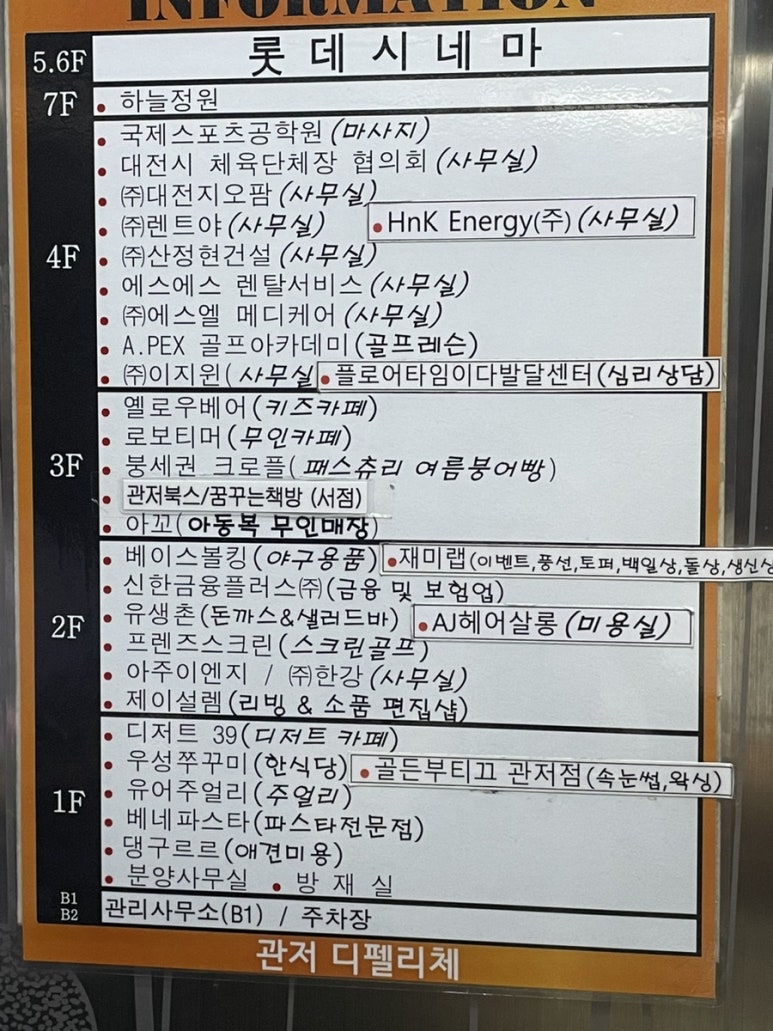 INFORMATION
5.6F 롯데시네마
7F • 하늘정원
4F
• 국제스포츠공학원 (마사지)
• 대전시 체육단체장 협의회 (사무실)
• ㈜대전지오팜 (사무실)
• ㈜렌트야 (사무실) • HnK Energy(주) (사무실)
• ㈜산정현건설 (사무실)
• 에스에스 렌탈서비스 (사무실)
• ㈜에스엘 메디케어 (사무실)
• A.PEX 골프아카데미 (골프레슨)
• ㈜이지윈( 사무실 • 플로어타임이다발달센터(심리상담)
3F
• 옐로우베어 (키즈카페)
• 로보티머 (무인카페)
• 붕세권 크로플( 패스츄리 여름붕어빵)
• 관저북스/꿈꾸는책방 (서점)
• 아꼬(아동복 무인매장)
2F
• 베이스볼킹 (야구용품) • 재미랩(이벤트,풍선,토퍼,백일상,돌상,생신상
• 신한금융플러스㈜(금융 및 보험업)
• 유생촌(돈까스&샐러드바) • AJ헤어살롱 (미용실)
• 프렌즈스크린 (스크린골프)
• 아주이엔지 / ㈜한강 (사무실)
• 제이설렘(리빙 & 소품 편집샵)
1F
• 디저트 39(디저트 카페)
• 우성쭈꾸미(한식당) • 골든부티끄 관저점(속눈썹,왁싱)
• 유어주얼리 (주얼리)
• 베네파스타(파스타전문점)
• 댕구르르(애견미용)
• 분양사무실 • 방 재 실
B1
B2
관리사무소(B1) / 주차장
관저 디펠리체